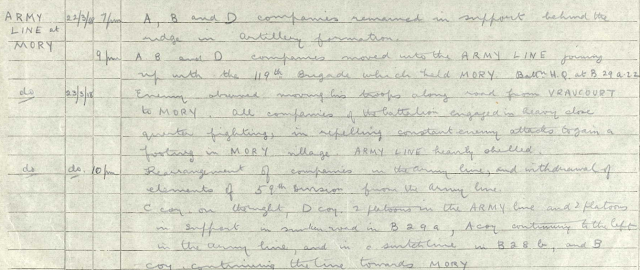 ARMY 22/3/18 7 pm A, B and D companies remained in support behind the
LINE at ridge in Artillery formation.
MORY 9 pm A B and D companies moved into the ARMY LINE joining
up with the 119th Brigade which held MORY. Battn H.Q. at B 29 a.22
do 23/3/18 Enemy observed moving his troops along road from VRAUCOURT
to MORY. All companies of the battalion engaged in heavy close
quarter fighting, in repelling constant enemy attacks to gain a
footing in MORY village ARMY LINE heavily shelled.
do do. 10 pm Rearrangement of companies in the army line, and withdrawal of
elements of 59th Division from the army line.
C coy. on the right, D coy. 2 platoons in the ARMY line and 2 platoons
in support in sunken road in B 29 a, A coy continuing to the left
in the army line, and in a switch line in B 28 b, and B
coy. continuing the line towards MORY